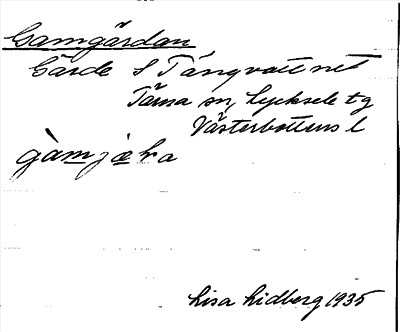 Gamgårdan
Gärde S Tängvattnet
Tärna sn, Lycksele tg
Västerbottens l
Lisa Lidberg 1935